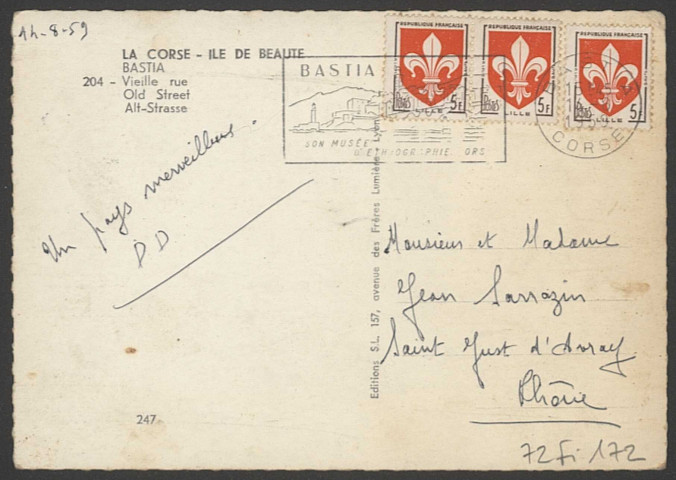 14-8-59
LA CORSE - ILE DE BEAUTE
BASTIA
204 - Vieille rue
Old Street
Alt-Strasse
Un pays merveilleux.
DD
247
Editions S.L. 157, avenue des Frères Lumière - Lyon
REPUBLIQUE FRANÇAISE
5F
LILLE
REPUBLIQUE FRANÇAISE
5F
LILLE
REPUBLIQUE FRANÇAISE
5F
LILLE
BASTIA
SON MUSÉE
D'ETHNOGRAPHIE CORSE
CORSE
Monsieur et Madame
Jean Sarrazin
Saint Just d'Avray
Rhône
72 Fi 172